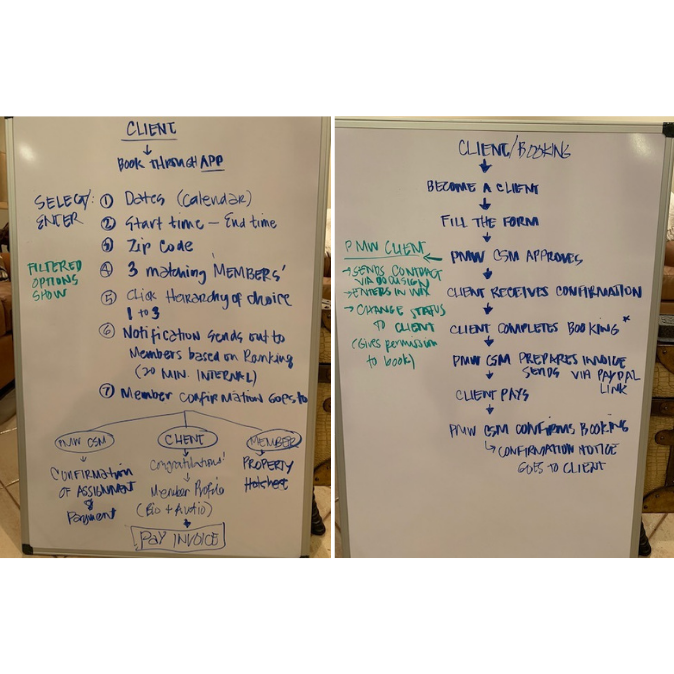 CLIENT
↓
BOOK THROUGH APP
SELECT/
ENTER
① Dates (Calendar)
② Start time – End time
③ Zip Code
FILTERED
OPTIONS
SHOW
④ 3 matching 'MEMBERS'
⑤ Click Hierarchy of choice
1 to 3
⑥ Notification sends out to
Members based on Ranking
(20 MIN. INTERNAL)
⑦ Member confirmation goes to
PMW CSM
↓
CONFIRMATION
OF ASSIGNMENT
&
Payment
CLIENT
↓
Congratulations!
↓
Member Profile
(Bio + Audio)
↓
PAY INVOICE
MEMBER
↓
PROPERTY
CLIENT/BOOKING
↓
BECOME A CLIENT
↓
FILL THE FORM
↓
PMW CSM APPROVES
↓
CLIENT RECEIVES CONFIRMATION
↓
CLIENT COMPLETES BOOKING *
↓
PMW CSM PREPARES INVOICE
SENDS VIA PAYPAL
LINK
↓
CLIENT PAYS
↓
PMW CSM CONFIRMS BOOKING
↳ CONFIRMATION NOTICE
GOES TO CLIENT
PMW CLIENT ←
→ SENDS CONTRACT
VIA DOCUSIGN
→ ENTERS IN WIX
→ CHANGE STATUS
TO CLIENT
(Gives permission
to book)